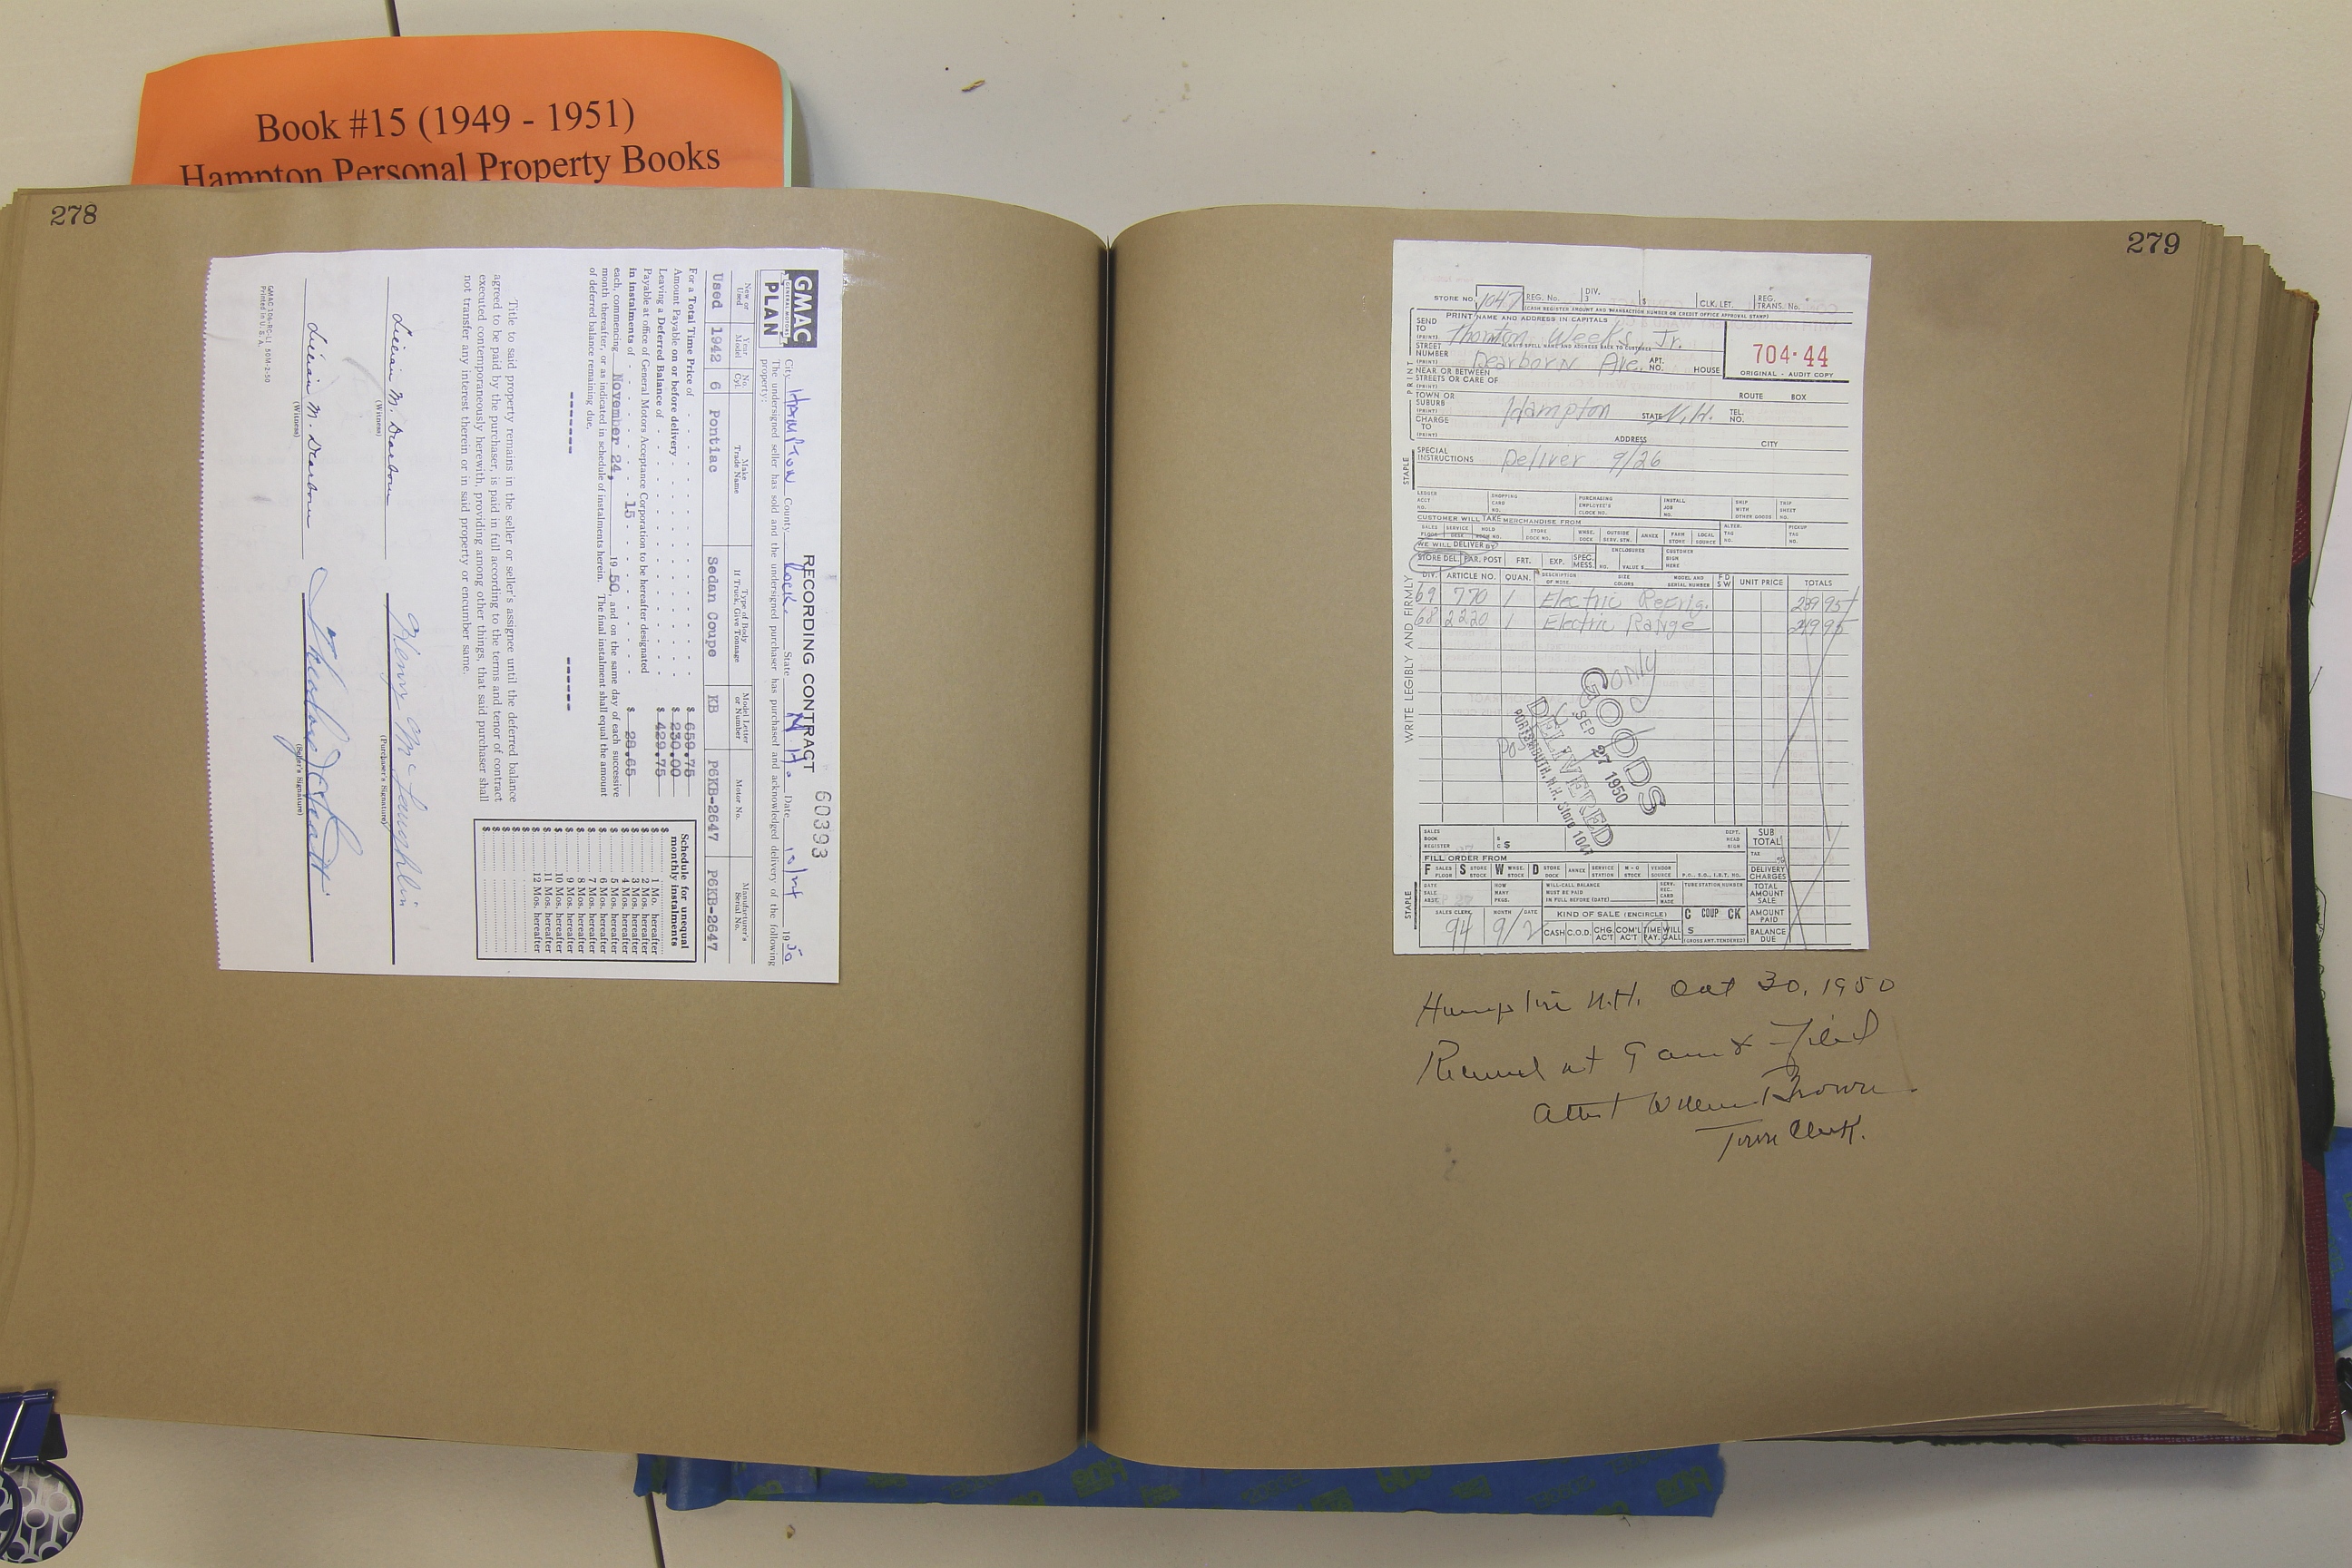 Book #15 (1949 - 1951)
Hampton Personal Property Books
278
GMAC
GENERAL MOTORS
PLAN
RECORDING CONTRACT
60393
City Hampton County Rock. State N.H. Date 10/24 1950
The undersigned seller has sold and the undersigned purchaser has purchased and acknowledged delivery of the following
property:
New or Used Year Model No. Cyl. Make Trade Name Type of Body If Truck, Give Tonnage Model Letter or Number Motor No. Manufacturer's Serial No.
Used 1942 6 Pontiac Sedan Coupe KB P6KB-2647 P6KB-2647
For a Total Time Price of - - - - - - - $ 659.75
Amount Payable on or before delivery - - - - - - - $ 230.00
Leaving a Deferred Balance of - - - - - - - $ 429.75
Payable at office of General Motors Acceptance Corporation to be hereafter designated
in instalments of - - - 15 - - - - - - $ 28.65
each, commencing November 24, 1950, and on the same day of each successive
month thereafter, or as indicated in schedule of instalments herein. The final instalment shall equal the amount
of deferred balance remaining due.
Schedule for unequal
monthly instalments
$ 1 Mo. hereafter
$ 2 Mos. hereafter
$ 3 Mos. hereafter
$ 4 Mos. hereafter
$ 5 Mos. hereafter
$ 6 Mos. hereafter
$ 7 Mos. hereafter
$ 8 Mos. hereafter
$ 9 Mos. hereafter
$ 10 Mos. hereafter
$ 11 Mos. hereafter
$ 12 Mos. hereafter
Title to said property remains in the seller or seller's assignee until the deferred balance
agreed to be paid by the purchaser, is paid in full according to the terms and tenor of contract
executed contemporaneously herewith, providing among other things, that said purchaser shall
not transfer any interest therein or in said property or encumber same.
Lillian M. Dearborn Henry McLaughlin
(Witness) (Purchaser's Signature)
Lillian M. Dearborn
(Witness) (Seller's Signature)
GMAC 106-RC-L1 50M-2-50
Printed in U.S.A.
279
STORE NO. 1047 REG. No. DIV. 3 $ CLK. LET. REG. TRANS. No.
(CASH REGISTER AMOUNT AND TRANSACTION NUMBER OR CREDIT OFFICE APPROVAL STAMP)
PRINT NAME AND ADDRESS IN CAPITALS
SEND TO (PRINT) Thornton Weeks, Jr.
704-44
ORIGINAL - AUDIT COPY
STREET NUMBER (PRINT) Dearborn Ave. APT. NO. HOUSE
NEAR OR BETWEEN STREETS OR CARE OF (PRINT)
ROUTE BOX
TOWN OR SUBURB (PRINT) Hampton STATE N.H. TEL. NO.
CHARGE TO (PRINT)
ADDRESS CITY
SPECIAL INSTRUCTIONS Deliver 9/26
PRINT
STAPLE
CUSTOMER WILL TAKE MERCHANDISE FROM
WE WILL DELIVER BY
STORE DEL. PAR. POST FRT. EXP. SPEC. MESS.
DIV. ARTICLE NO. QUAN. DESCRIPTION OF MDSE. SIZE COLORS MODEL AND SERIAL NUMBER UNIT PRICE TOTALS
69 770 1 Electric Refrig. 239 95
68 2220 1 Electric Range 249 95
WRITE LEGIBLY AND FIRMLY
only
GOODS
SEP 27 1950
DELIVERED
PORTSMOUTH, N.H. Store 1047
SUB TOTAL
TAX
FILL ORDER FROM
F SALES FLOOR S STORE STOCK W WHSE. STOCK D STORE DOCK ANNEX SERVICE STATION M-O STOCK VENDOR SOURCE
DELIVERY CHARGES
TOTAL AMOUNT SALE
STAPLE
SALES CLERK MONTH DATE KIND OF SALE (ENCIRCLE) C COUP CK AMOUNT PAID
94 9/2 CASH C.O.D. CHG. AC'T COM'L AC'T TIME PAY. WILL CALL $ BALANCE DUE
(GROSS AMT. TENDERED)
Hampton N.H. Oct 30, 1950
Received at 9 am & Filed
Attest William Brown
Town Clerk.